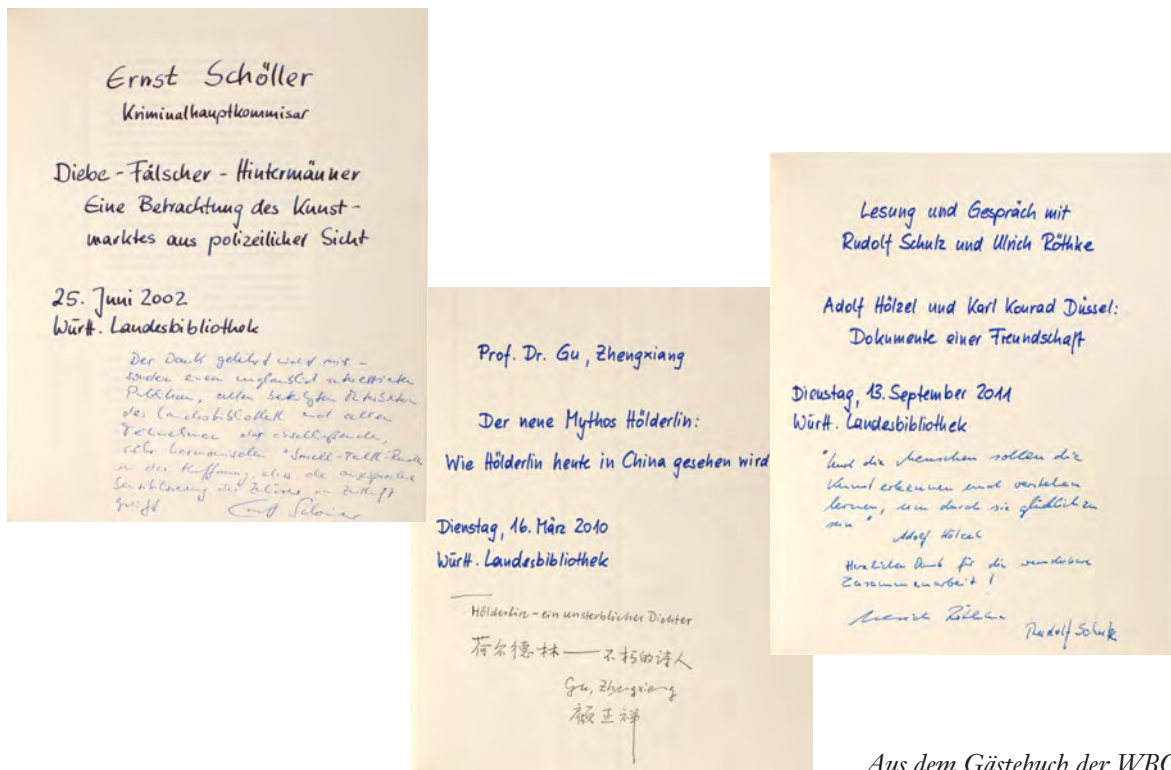 Ernst Schöller
Kriminalhauptkommisar
Diebe - Fälscher - Hintermänner
Eine Betrachtung des Kunst-
marktes aus polizeilicher Sicht
25. Juni 2002
Württ. Landesbibliothek
Der Dank gebührt nicht mir –
sondern einem unglaublich interessierten
Publikum, allen
der Landesbibliothek und allen
Teilnehmern der anschließenden,
sehr harmonischen "Small-Talk-Runde
in der Hoffnung, dass die angesprochene
Sensibilisierung der Zuhörer in Zukunft
greift
Prof. Dr. Gu, Zhengxiang
Der neue Mythos Hölderlin:
Wie Hölderlin heute in China gesehen wird
Dienstag, 16. März 2010
Württ. Landesbibliothek
Hölderlin - ein unsterblicher Dichter
荷尔德林——不朽的诗人
Gu, Zhengxiang
顾正祥
Lesung und Gespräch mit
Rudolf Schulz und Ulrich Röthke
Adolf Hölzel und Karl Konrad Düssel:
Dokumente einer Freundschaft
Dienstag, 13. September 2011
Württ. Landesbibliothek
"Und die Menschen sollen die
Kunst erkennen und verstehen
lernen, um durch sie glücklich zu
sein"
Adolf Hölzel
Herzlichen Dank für die wunderbare
Zusammenarbeit!
Ulrich Röthke
Rudolf Schulz
Aus dem Gästebuch der WBG